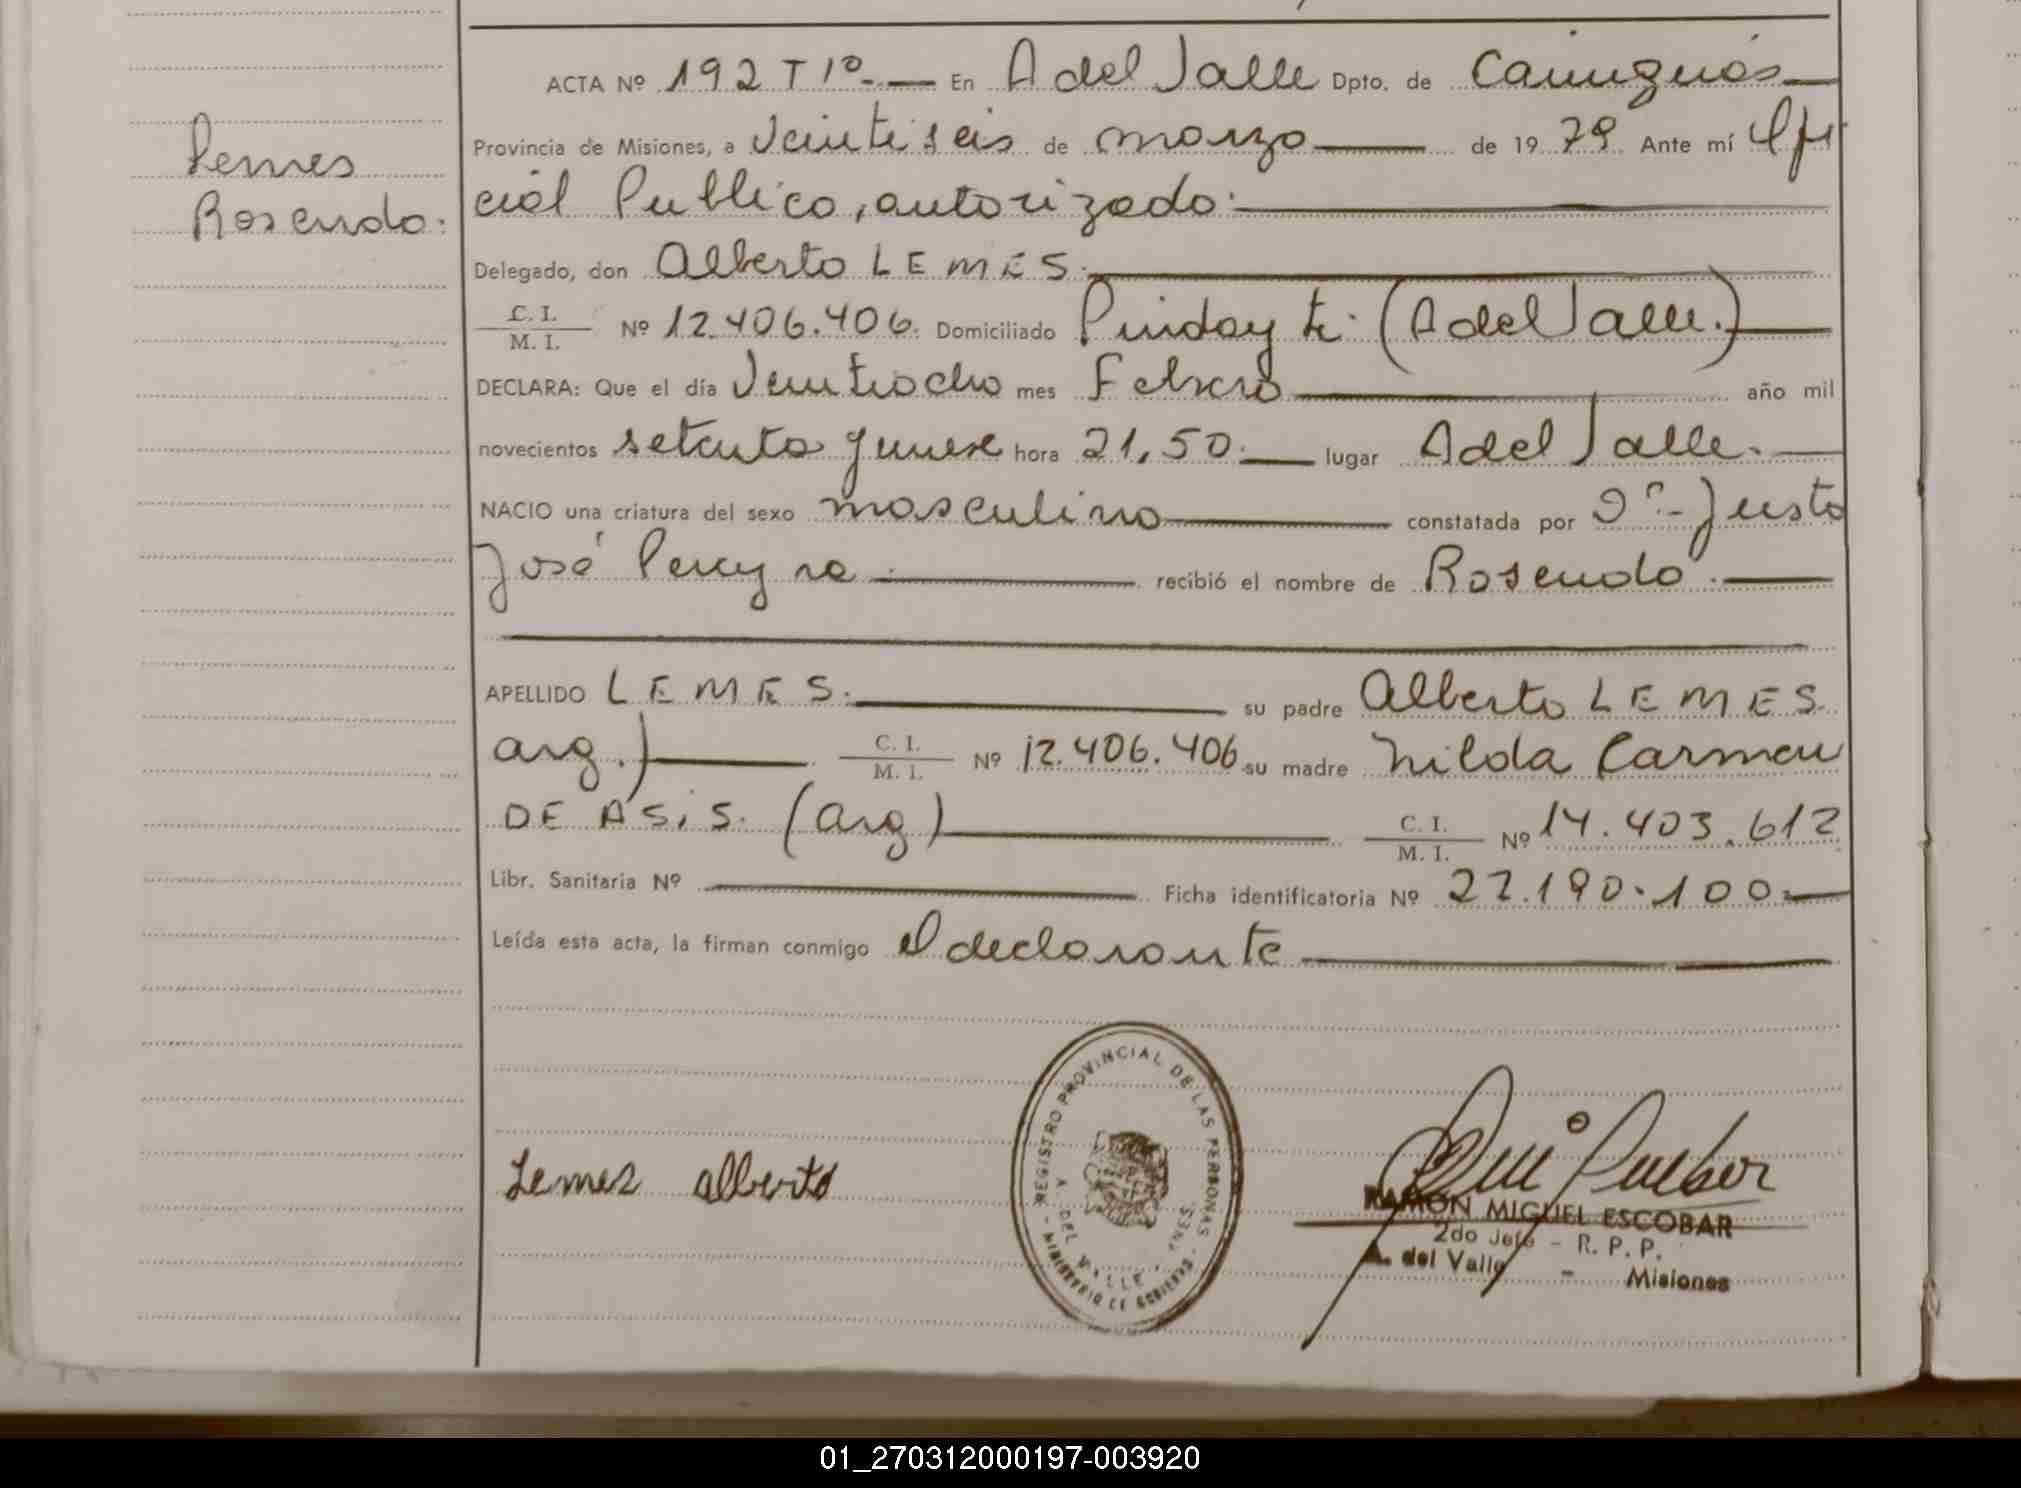 ACTA Nº 192 T 1º.- En A del Valle Dpto. de Cainguás
Provincia de Misiones, a veintiseis de marzo de 1979 Ante mí Ofi
cial Publico, autorizado.
Lemes
Rosendo.
Delegado, don Alberto LEMES.
C. I.
M. I. Nº 12.406.406. Domiciliado Pindayti (A del Valle.)
DECLARA: Que el día Veintiocho mes Febrero año mil
novecientos setenta y nueve hora 21,50. lugar A del Valle.
NACIO una criatura del sexo masculino constatada por Dr.- Justo
José Pereyra recibió el nombre de Rosendo.
APELLIDO LEMES. su padre Alberto LEMES.
arg.) C. I.
M. I. Nº 12.406.406 su madre Nilda Carmen
DE ASIS. (arg) C. I.
M. I. Nº 14.403.612
Libr. Sanitaria Nº Ficha identificatoria Nº 27.190.100.
Leída esta acta, la firman conmigo el declarante
Lemes alberto
REGISTRO PROVINCIAL DE LAS PERSONAS
MINISTERIO DE GOBIERNO
DEL VALLE
RAMON MIGUEL ESCOBAR
2do Jefe - R. P. P.
A. del Valle - Misiones
01_270312000197-003920